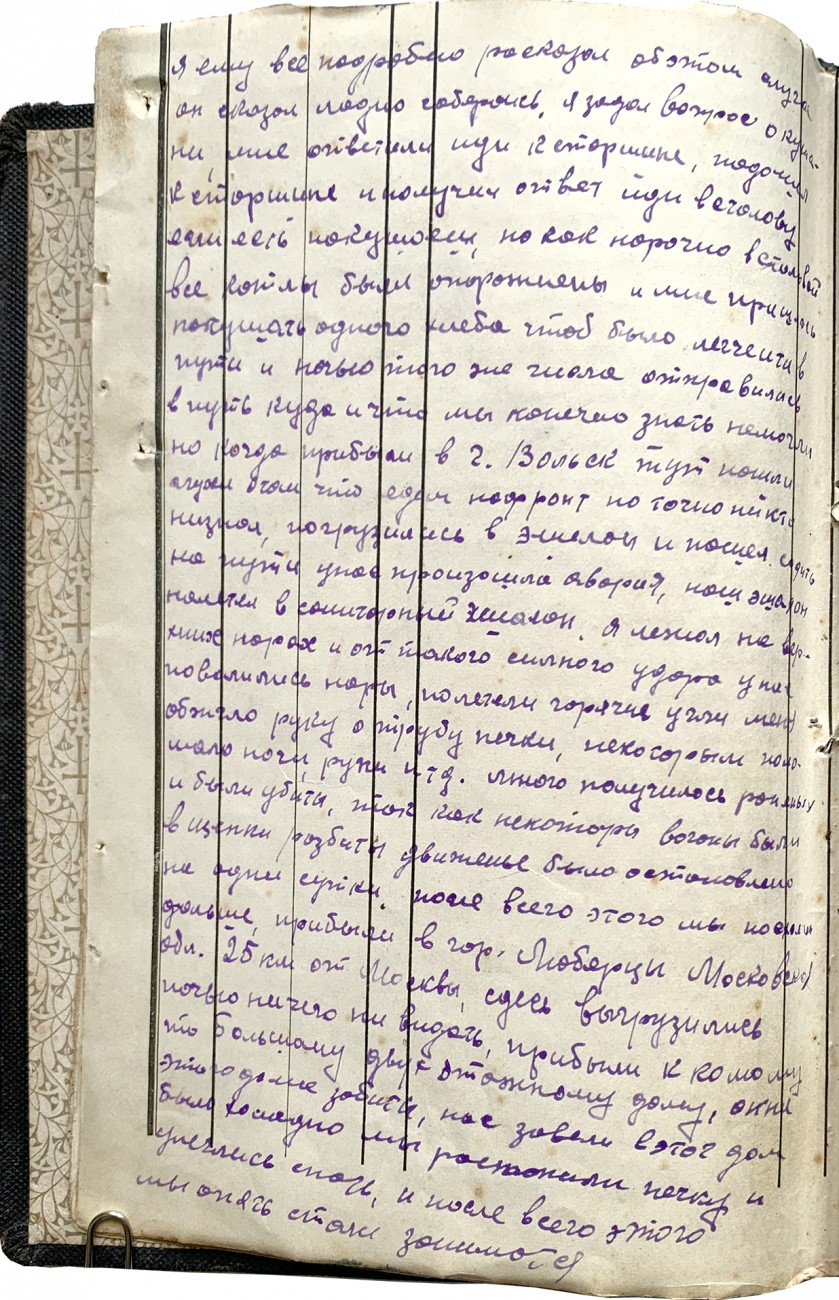 я ему все подробно расказал обэтом случаи
он сказал ладно собераись, я задал вопрос о куша-
ни, мне ответили иди к старшине, подошол
к старшине и получил ответ иди в столову
если есть покушаеш, но как нарочно в столовой
все котлы были опорожнены и мне пришлось
покушать одного хлеба чтоб было легче итти в
пути и ночью того же числа отправились
в путь куда и что мы конечно знать немогли
но когда прибыли в г. Вольск тут пошли
слухи отом что едем нафронт но точно никто
низнал, погрузились в эшелон и пошел
на пути унас произошла авария, наш эшалон
налетел в санитарный эшалон. Я лежал на вер-
хних нарах и от такого силного удара унас
повалились нары, полетели горячие угли меня
обожгло руку о трубу печки, некоторым поло-
мало ноги, руки и тд. много получилось раненых
и были убиты, так как некоторы вагоны были
в щепки розбиты движенье было остановлено
на одни сутки. после всего этого мы поехали
дальше, прибыли в гор. Люберцы Московской
обл. 25 км от Москвы, сдесь выгрузились
ночью ничего ни видать, прибыли к комому
то большому двух этажному дому, окна
этого дома забиты, нас завели в этот дом
было холодно мы растопили печку и
улеглись спать, и после всего этого
мы опять стали заниматся